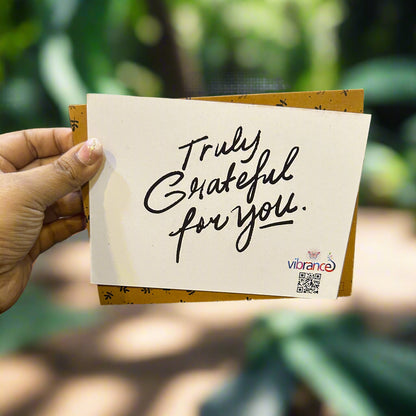 Truly
Grateful
for you.
vibrance